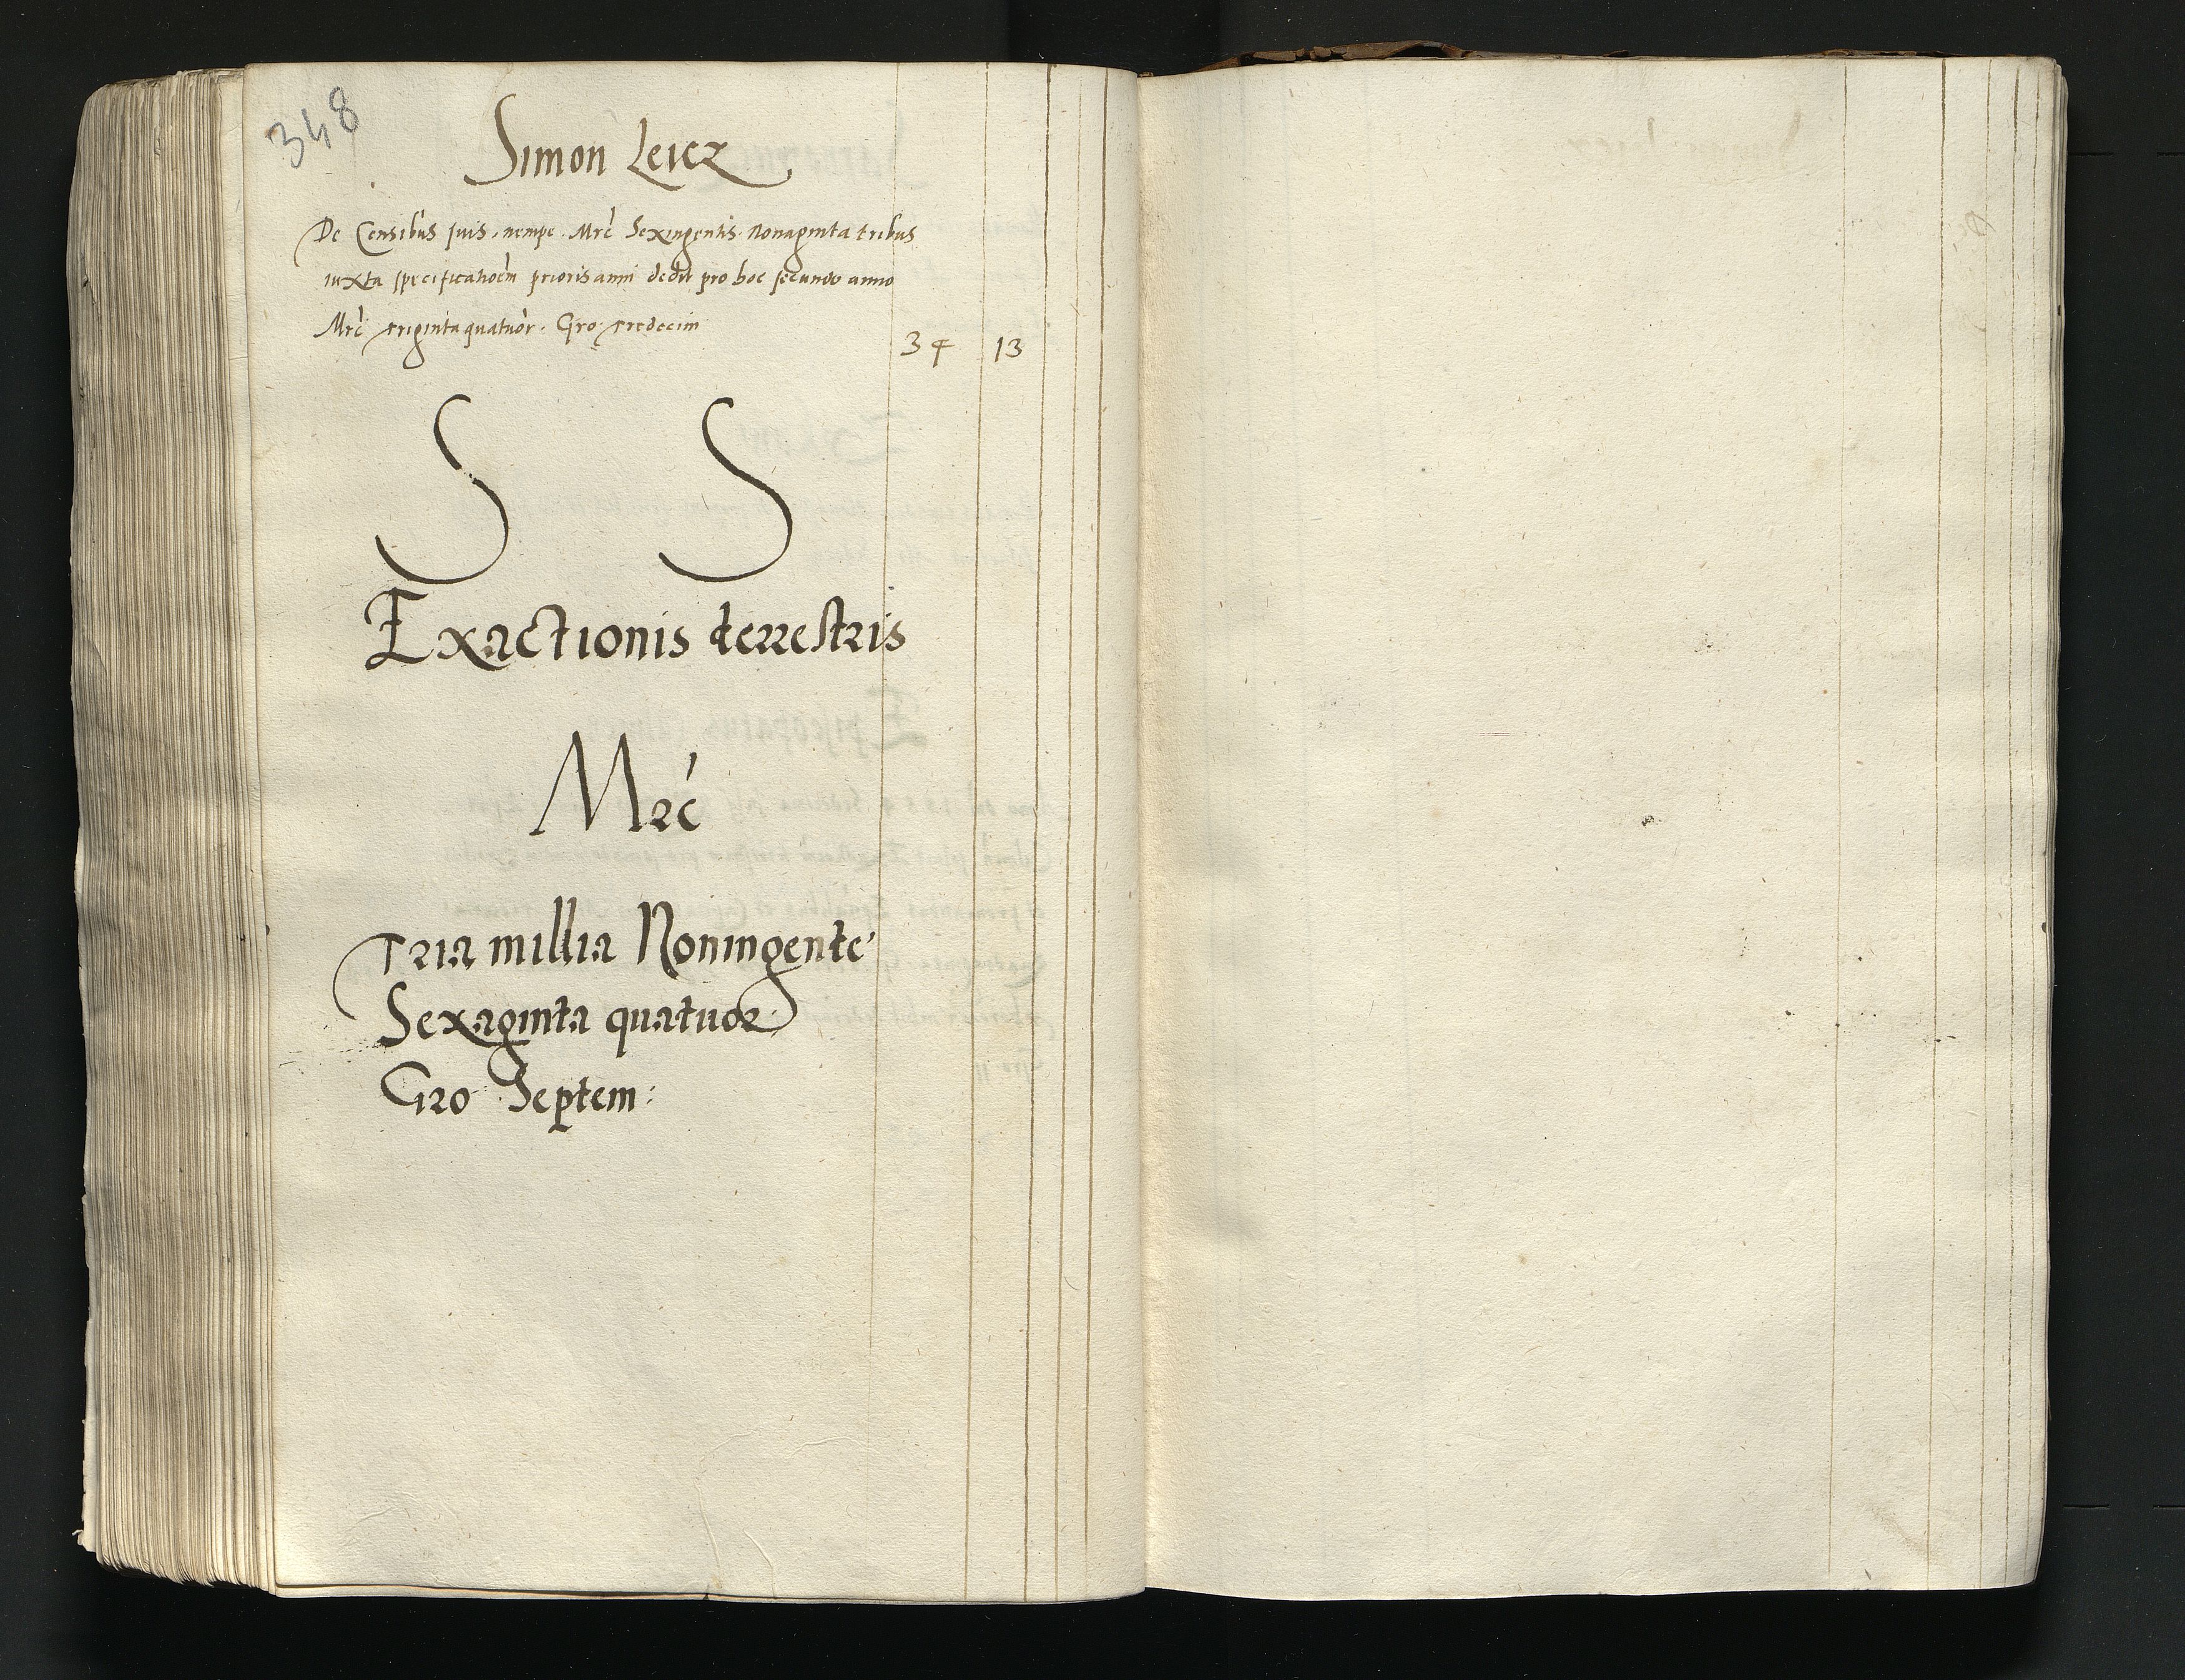 348
Simon Leicz
De Censibus suis, nempe Mrc Sexingentis Nonaginta tribus
iuxta specificatioem prioris anni dedit pro hoc secundo anno
Mrc triginta quatuor. Gro: tredecim
34 13
S S
Exactionis terrestris
Mrc
Tria millia Noningente
Sexaginta quatuor
Gro Septem: